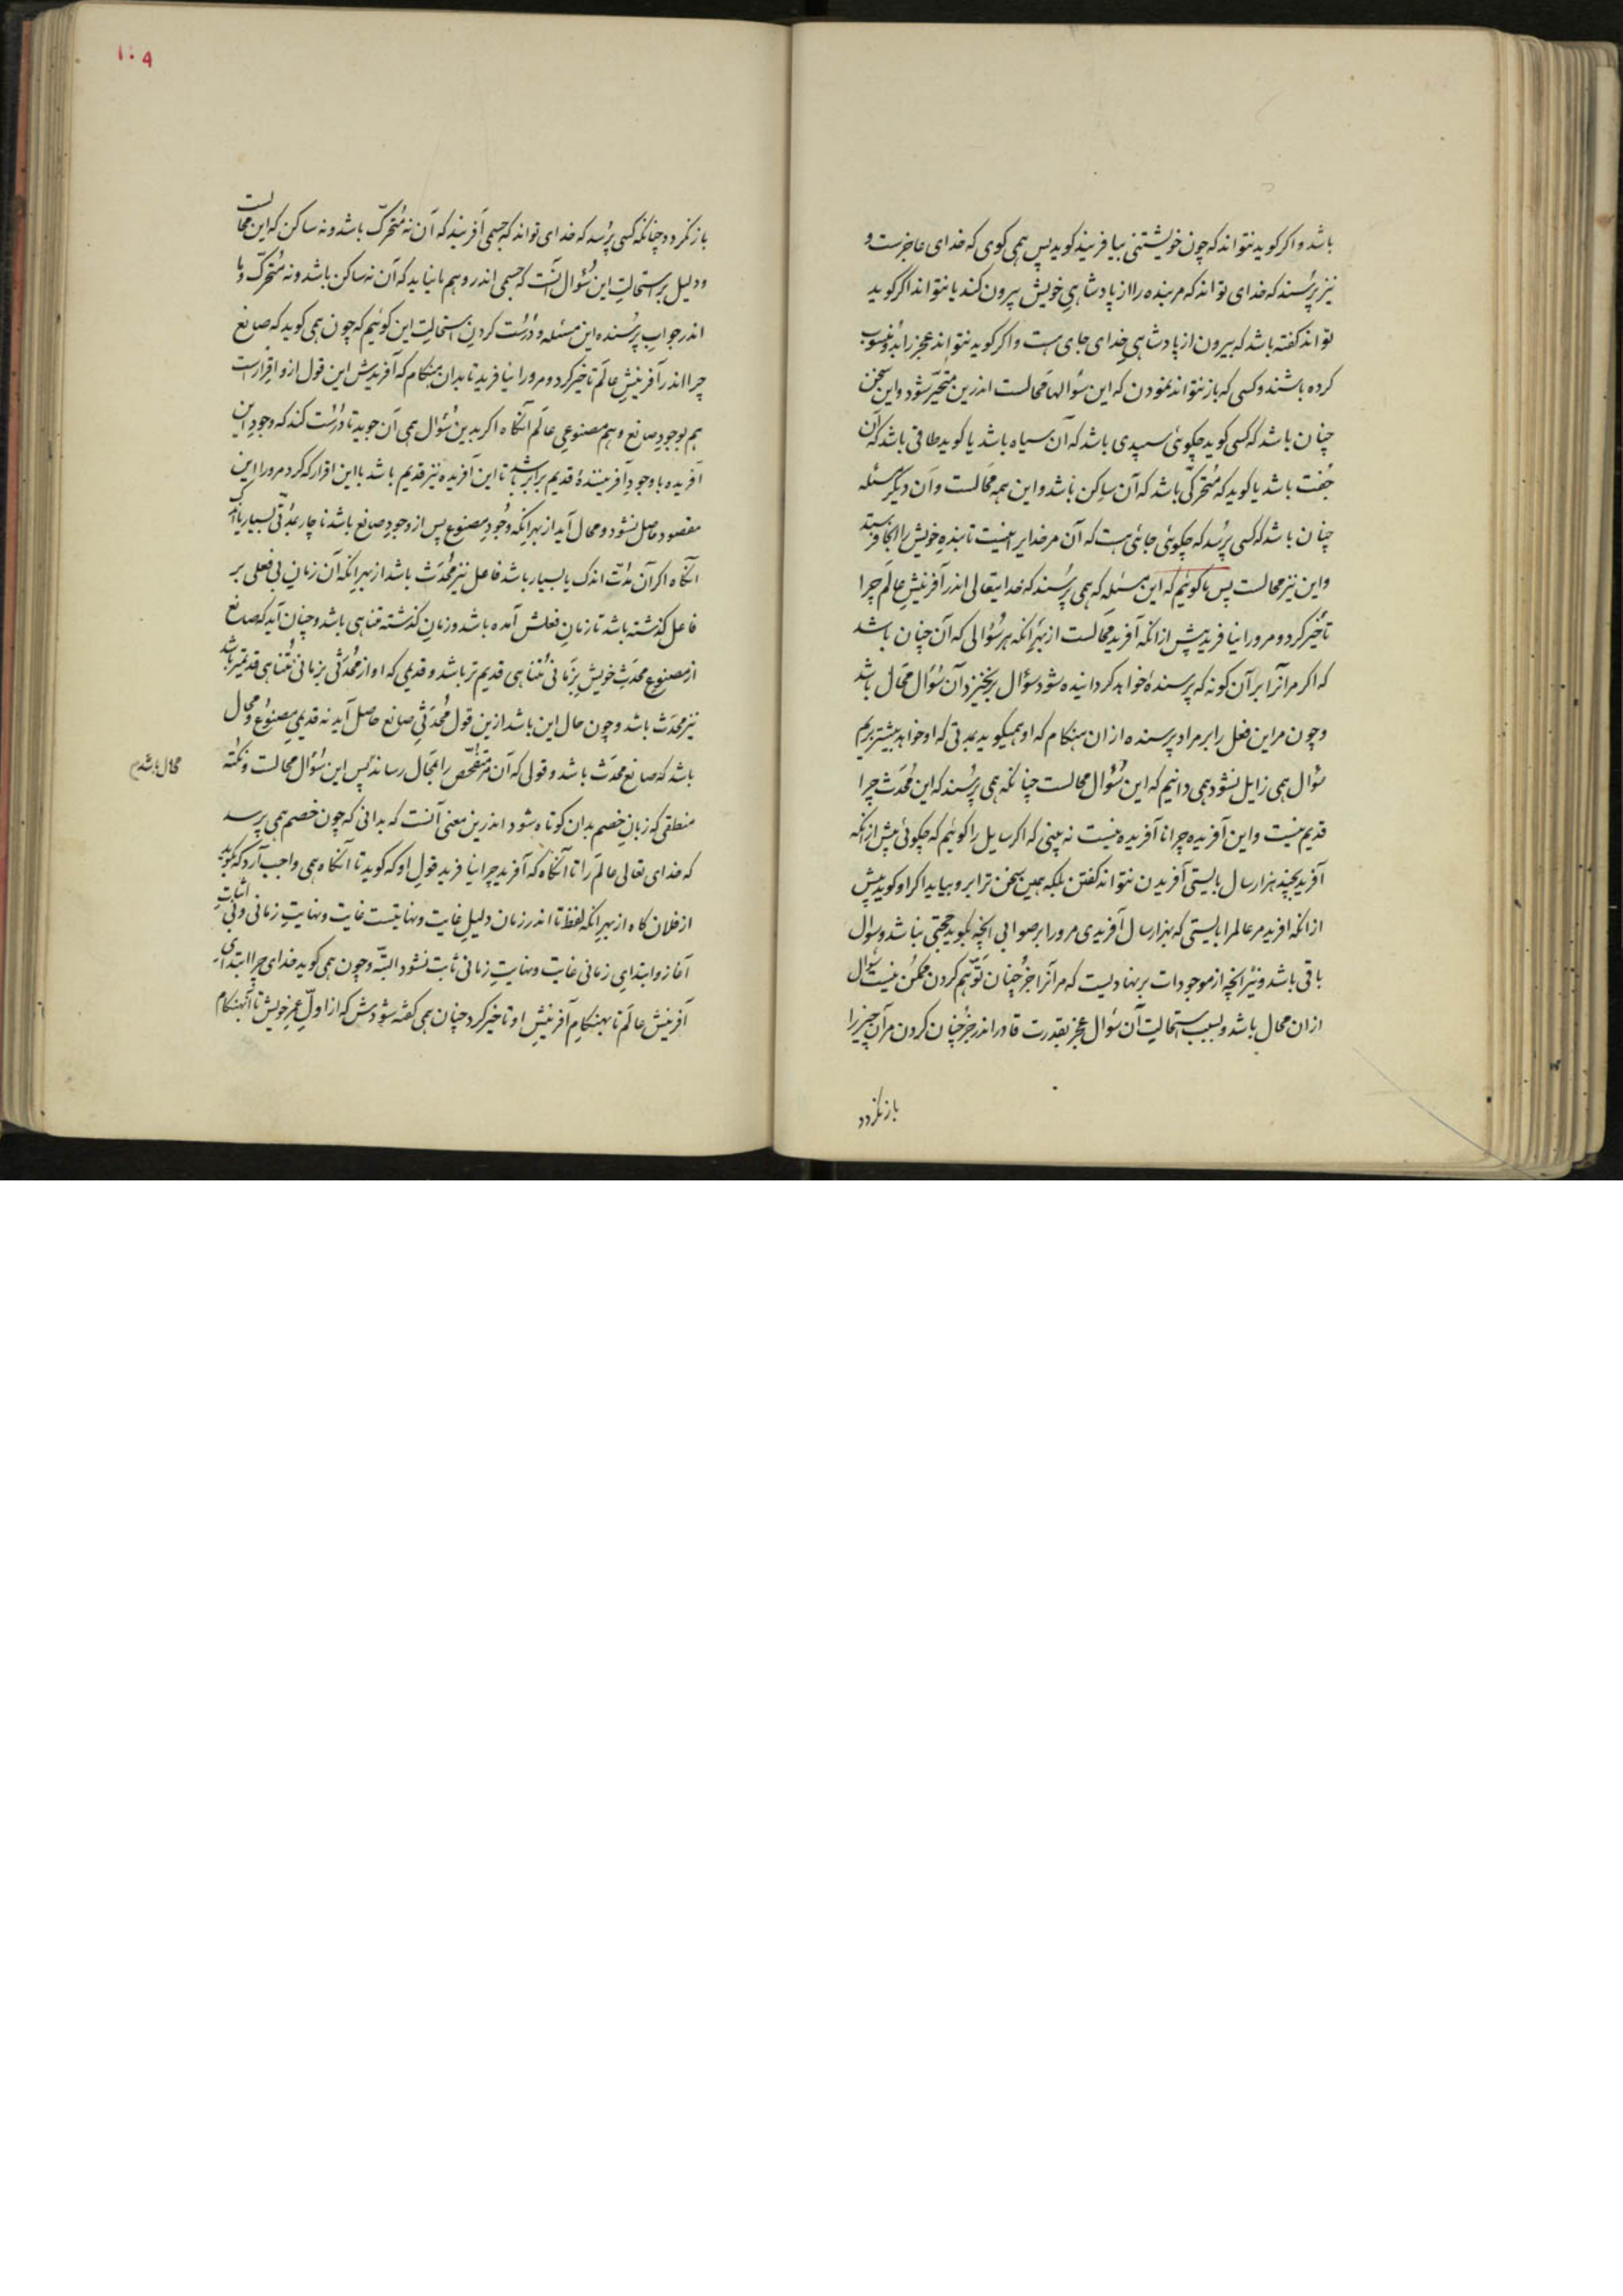 باشد و اکر کوید نتواند که چون خویشتنی بیافریند کوید پس همی کوی که خدای عاجزست و
نیز پرسند که خدای تواند که مر بنده را از پادشاهیِ خویش بیرون کند یا نتواند اکر کوید
تواند کفته باشد که بیرون از پادشاهیِ خدای جای هست و اکر کوید نتواند عجز را بدو منسوب
کرده باشند و کسی که باز نتواند نمودن که این سؤالها محالست اندرین متحیّر شود و این سخن
چنان باشد که کسی کوید چکوئی سپیدی باشد که آن سیاه باشد یا کوید طاقی باشد که آن
جفت باشد یا کوید که متحرکی باشد که آن ساکن باشد و این همه محالست و آن دیکر مسئله
چنان باشد که کسی پرسد که چکوئی جائی هست که آن مر خدایرا نیست تا بنده خویش را آنجا فرستد
و این نیز محالست پس ما کوئیم که این مسئله که همی پرسند که خدایتعالی اندر آفرینشِ عالَم چرا
تأخیر کرد و مرورا نیافرید پیش از انکه آفرید محالست از بهر انکه هر سؤالی که آن چنان باشد
که اکر مر آنرا بر آن کونه که پرسنده خواهد کردانیده شود سؤال برنخیزد آن سؤال محال باشد
و چون مر این فعل را بر مراد پرسنده از ان هنکام که او همیکوید بمدتی که او خواهد پیشتر بریم
سؤال همی زایل نشود همی دانیم که این سؤال محالست چنانکه همی پرسند که این محدَث چرا
قدیم نیست و این آفریده چرا ناآفریده نیست نه بینی که اکر سایل را کوئیم که چکوئی پیش از انکه
آفرید بچند هزار سال بایستی آفریدن نتواند کفتن بلکه همین سخن ترا بر وبیاید اکر او کوید پیش
از انکه آفرید مر عالمرا بایستی که بهزار سال آفریدی مرورا بر صوابی انچه بکوید حجّتی نباشد و سؤال
باقی باشد و نیز انچه از موجودات بر نهادیست که مر آنرا جز چنان توهّم کردن ممکن نیست سؤال
از ان محال باشد و بسبب استحالتِ آن سؤال عجز بقدرت قادر اندر جز چنان کردن مر آن چیز را
باز نکردد
۱۰۹
باز نکردد چنانکه کسی پرسد که خدای تواند که جسمی آفریند که آن نه متحرّک باشد و نه ساکن که این محالست
و دلیل بر استحالتِ این سؤال آنست که جسمی اندر وهم ما نیاید که آن نه ساکن باشد و نه متحرّک و ما
اندر جوابِ پرسنده این مسئله و درست کردنِ استحالتِ این کوئیم که چون همی کوید که صانع
چرا اندر آفرینشِ عالَم تاخیر کرد و مرورا نیافرید تا بدان هنکام که آفریدش این قول ازو اقرارست
هم بوجودِ صانع و هم مصنوعیِ عالَم آنکاه اکر بدین سؤال همی آن جوید تا درست کند که وجودِ این
آفریده با وجودِ آفرینندهٔ قدیم برابر باشد تا این آفریده نیز قدیم باشد با این اقرار که کرد مرورا این
مقصود حاصل نشود و محال آید از بهر انکه وجودِ مصنوع پس از وجودِ صانع باشد ناچار بمدّتی بسیار یا اندک
آنکاه اکر آن مدّت اندک یا بسیار باشد فاعل نیز محدَث باشد از بهر انکه آن زمانِ بی فعلی بر
فاعل کذشته باشد تا زمانِ فعلش آمده باشد و زمانِ کذشته متناهی باشد و چنان آید که صانع
از مصنوعِ محدَثِ خویش بزمانی متناهی قدیم تر باشد و قدیمی که او از محدَثی بزمانی متناهی قدیمتر باشد
نیز محدَث باشد و چون حال این باشد ازین قول محدَثیِ صانع حاصل آید نه قدیمیِ مصنوع و محال
باشد که صانع محدَث باشد و قولی که آن متفحّص را بمحال رساند پس این سؤال محالست و نکته
محال باشد م
منطقی که زبانِ خصم بدان کوتاه شود اندرین معنی آنست که بدانی که چون خصم همی پرسد
که خدای تعالی عالَم را تا آنکاه که آفرید چرا نیافرید قولِ او که کوید تا آنکاه همی واجب آرد که کوید
از فلان کاه از بهر انکه لفظ تا اندر زمان دلیلِ غایت و نهایتست غایت و نهایتِ زمانی و بی اثباتِ
آغاز و ابتدایِ زمانی غایت و نهایتِ زمانی ثابت نشود البتّه و چون همی کوید خدای چرا ابتدایِ
آفرینشِ عالَم تا بهنکامِ آفرینشِ او تاخیر کرد چنان همی کفته شودش که از اولِّ عمرِ خویش تا آنهنکام